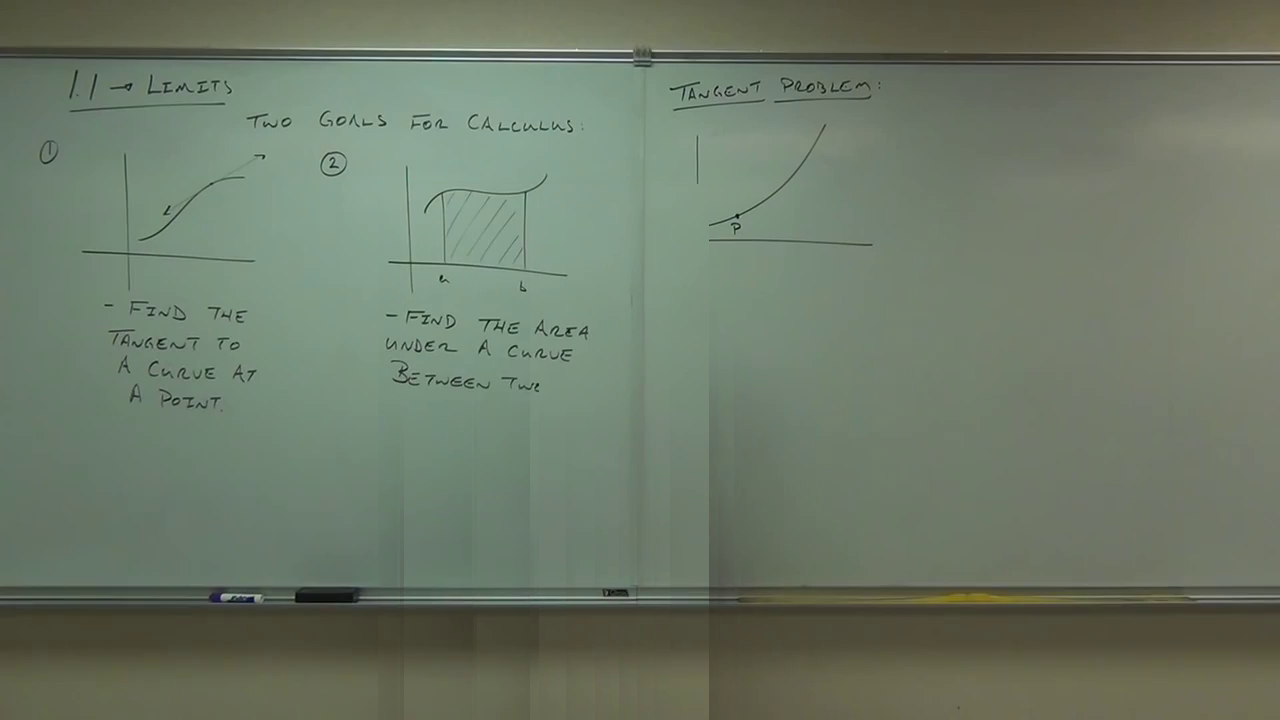 1.1 → LIMITS
TWO GOALS FOR CALCULUS:
①
②
a b
- FIND THE
TANGENT TO
A CURVE AT
A POINT.
- FIND THE AREA
UNDER A CURVE
BETWEEN TWO
TANGENT PROBLEM:
P